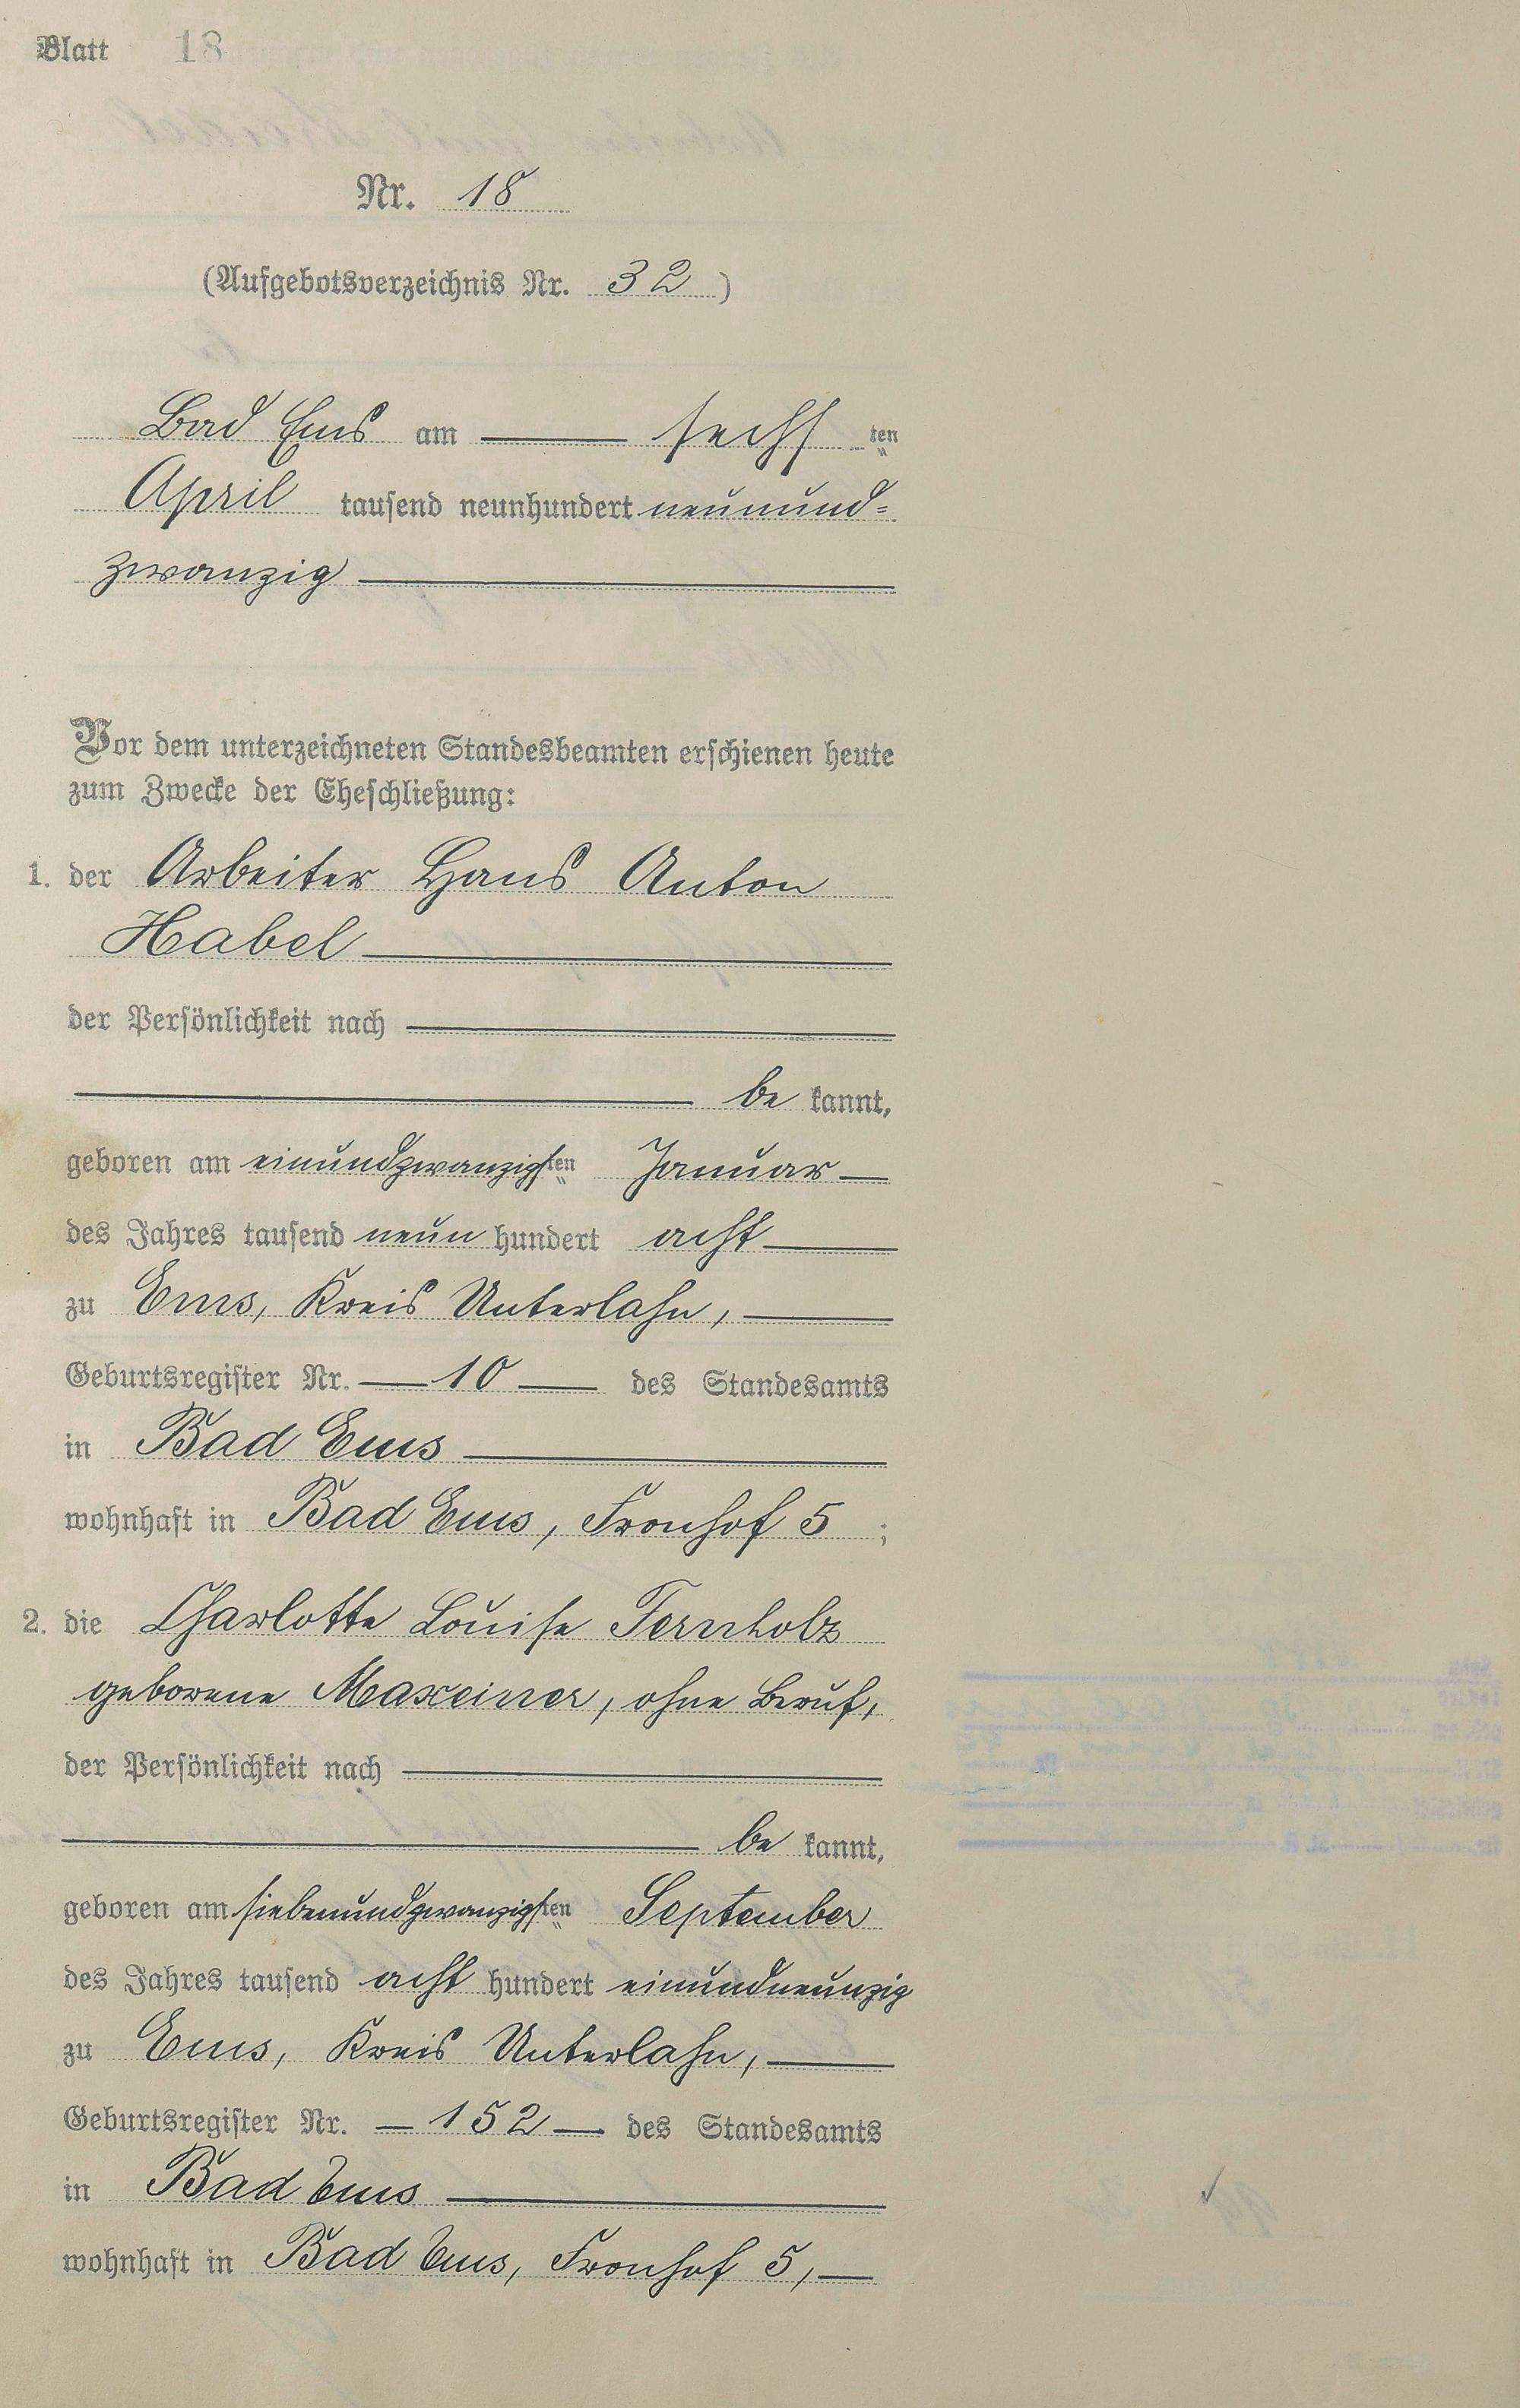 Blatt 18
Nr. 18
(Aufgebotsverzeichnis Nr. 32)
Bad Ems am sechsten
April tausend neunhundert neunund=
zwanzig
Vor dem unterzeichneten Standesbeamten erschienen heute
zum Zwecke der Eheschließung:
1. der Arbeiter Hans Anton
Habel
der Persönlichkeit nach
be kannt,
geboren am einundzwanzigsten Januar
des Jahres tausend neun hundert acht
zu Ems, Kreis Unterlahn,
Geburtsregister Nr. 10 des Standesamts
in Bad Ems
wohnhaft in Bad Ems, Fronhof 5 ;
2. die Charlotte Louise Fernholz
geborene Maxeiner, ohne Beruf,
der Persönlichkeit nach
be kannt,
geboren am siebenundzwanzigsten September
des Jahres tausend acht hundert einundneunzig
zu Ems, Kreis Unterlahn,
Geburtsregister Nr. 152 des Standesamts
in Bad Ems
wohnhaft in Bad Ems, Fronhof 5,